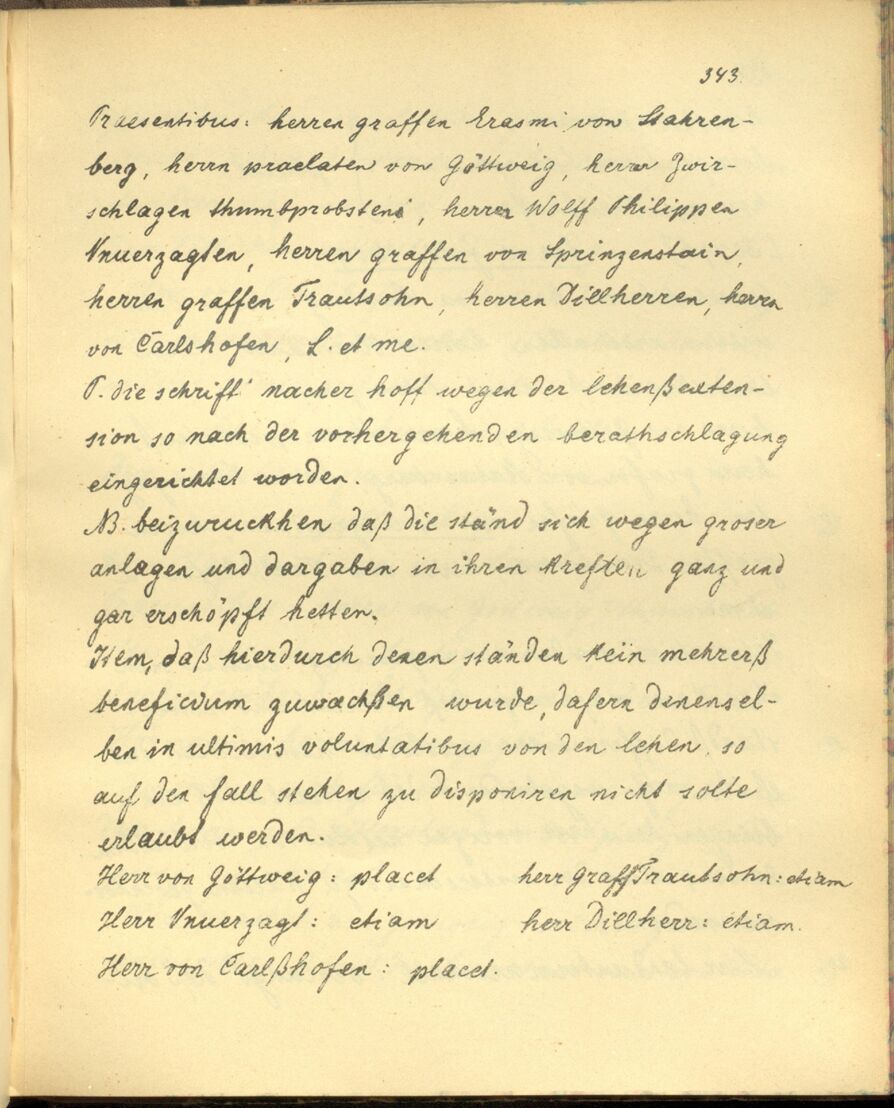 343.
Praesentibus: herren graffen Erasmi von Stahren-
berg, herrn praelaten von Göttweig, herrn Zwir-
schlagen thumbprobsten, herren Wolff Philippen
Vnuerzagten, herren graffen von Sprinzenstain,
herren graffen Trautsohn, herren Dillherren, herrn
von Carlshofen, L. et me.
P. die schrifft nacher hoff wegen der lehenßexten-
sion so nach der vorhergehenden berathschlagung
eingerichtet worden.
NB. beizuruckhen daß die ständ sich wegen groser
anlagen und dargaben in ihren kreften ganz und
gar erschöpft hetten.
Item, daß hierdurch denen ständen kein mehrerß
beneficium zuwachßen wurde, dafern denensel-
ben in ultimis voluntatibus von den lehen, so
auf den fall stehen zu disponiren nicht solte
erlaubt werden.
Herr von Göttweig: placet herr Graff Trautsohn: etiam
Herr Vnuerzagt: etiam herr Dillherr: etiam.
Herr von Carlßhofen: placet.